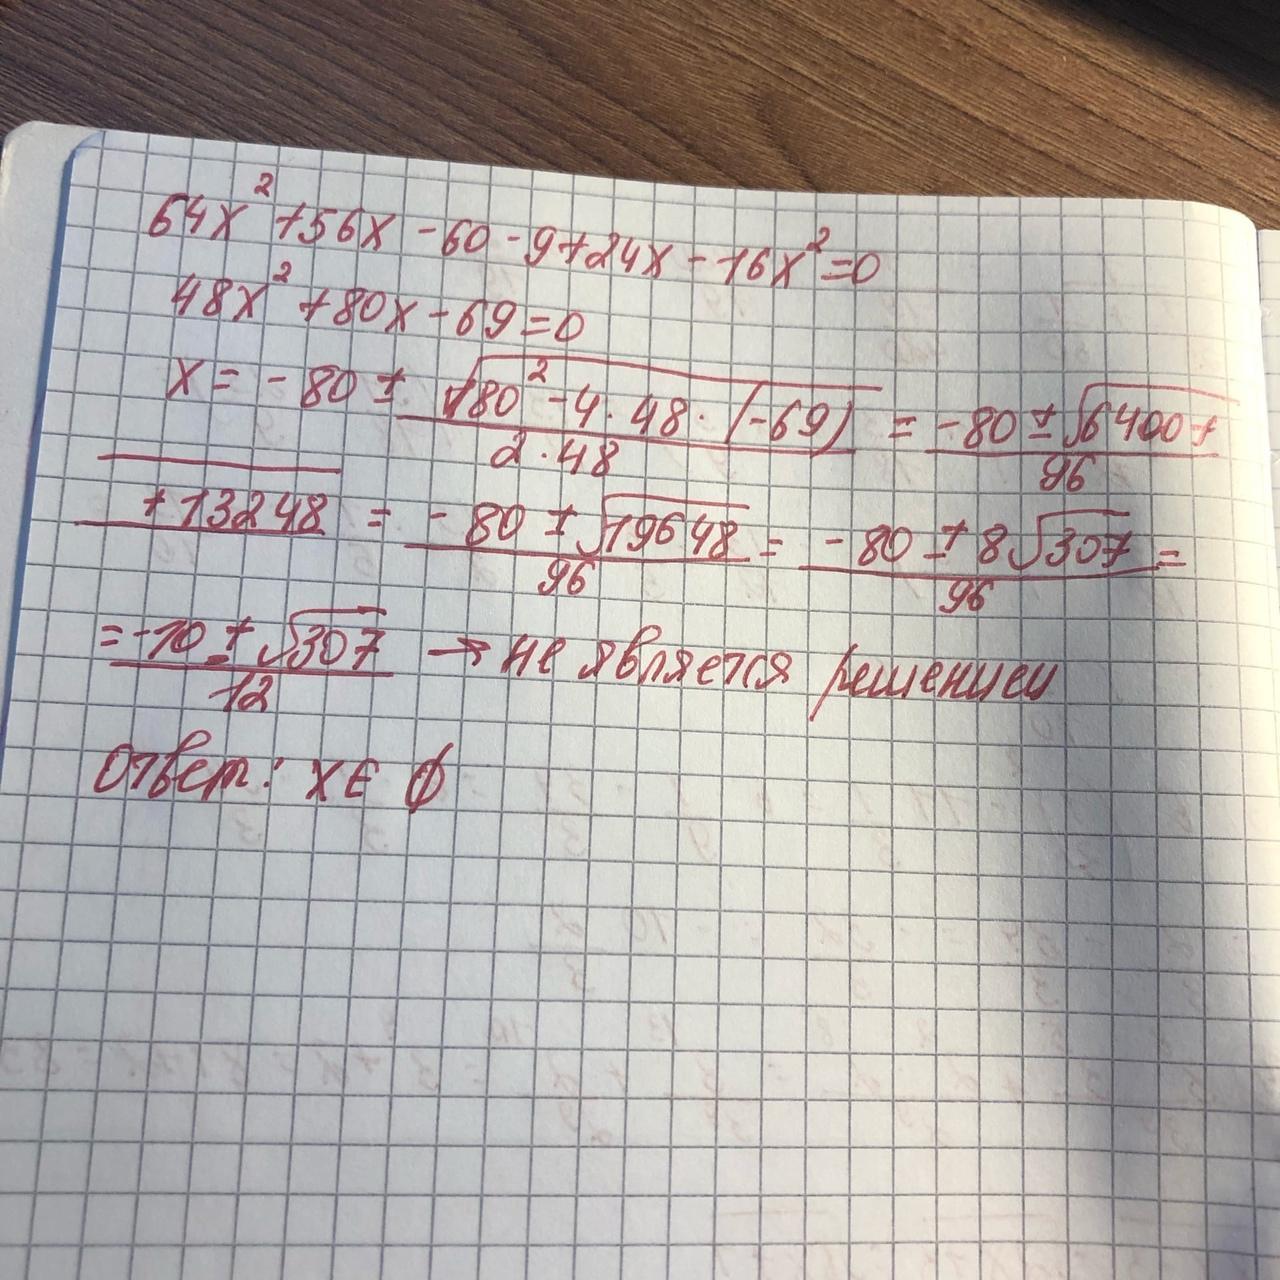 64x² + 56x - 60 - 9 + 24x - 16x² = 0
48x² + 80x - 69 = 0
x = -80 ± √(80² - 4 · 48 · (-69)) / 2 · 48 = (-80 ± √6400 +) / 96
+ 13248 = (-80 ± √19648) / 96 = (-80 ± 8√307) / 96 =
= (-10 ± √307) / 12 → не является решением
Ответ: x ∈ ∅